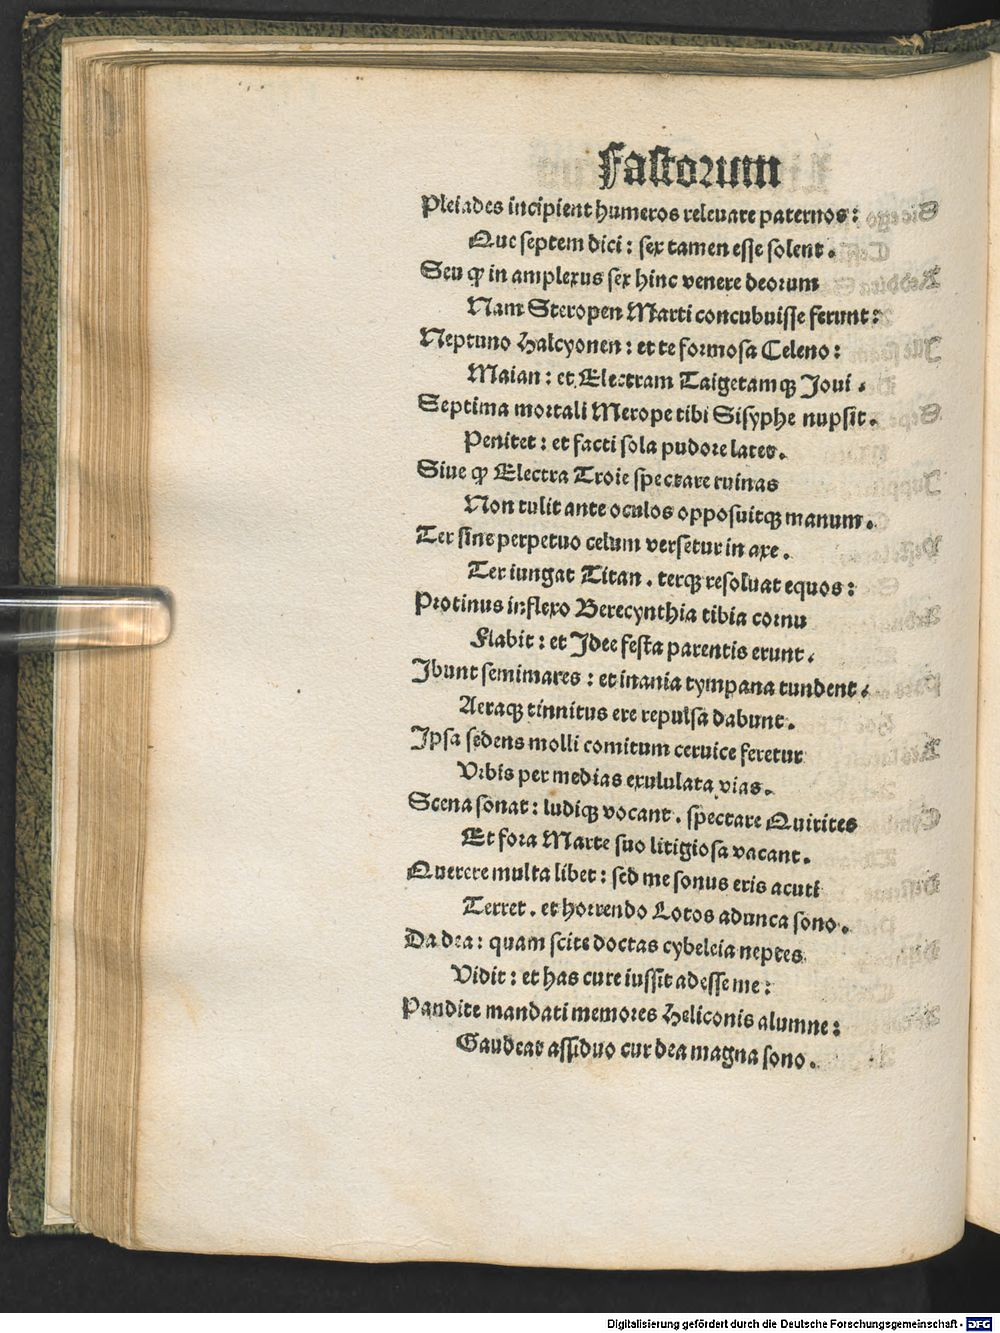 Fastorum
Pleiades incipient humeros releuare paternos:
Que septem dici: sex tamen esse solent.
Seu ꝙ in amplexus sex hinc venere deorum
Nam Steropen Marti concubuisse ferunt:
Neptuno Halcyonen: et te formosa Celeno:
Maian: et Electram Taigetamqꝫ Joui.
Septima mortali Merope tibi Sisyphe nupsit.
Penitet: et facti sola pudore latet.
Siue ꝙ Electra Troie spectare ruinas
Non tulit ante oculos opposuitqꝫ manum.
Ter sine perpetuo celum versetur in axe.
Ter iungat Titan. terqꝫ resoluat equos:
Protinus inflexo Berecynthia tibia cornu
Flabit: et Idee festa parentis erunt.
Ibunt semimares: et inania tympana tundent.
Aeraqꝫ tinnitus ere repulsa dabunt.
Ipsa sedens molli comitum ceruice feretur
Vrbis per medias exululata vias.
Scena sonat: ludiqꝫ vocant. spectare Quirites
Et fora Marte suo litigiosa vacant.
Querere multa libet: sed me sonus eris acuti
Terret. et horrendo Lotos adunca sono.
Da dea: quam scite doctas cybeleia neptes
Vidit: et has cure iussit adesse me:
Pandite mandati memores Heliconis alumne:
Gaudeat assiduo cur dea magna sono.
Digitalisierung gefördert durch die Deutsche Forschungsgemeinschaft - DFG